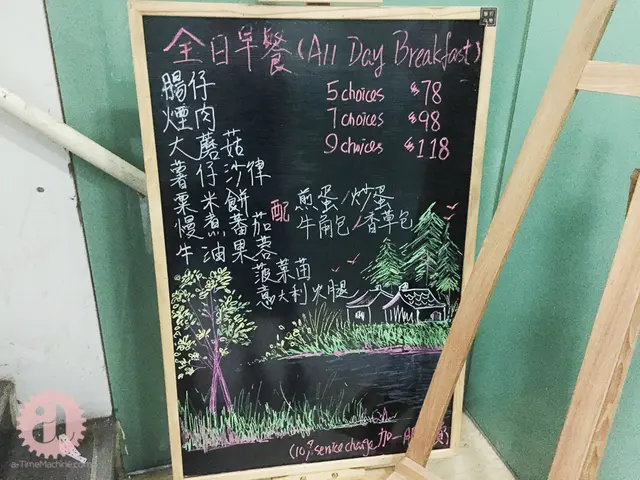 全日早餐 (All Day Breakfast)
腸仔
5 choices $78
煙肉
7 choices $98
大蘑菇
9 choices $118
薯仔沙律
粟米餅
配 煎蛋/炒蛋
慢煮蕃茄
牛角包/香草包
牛油果蓉
菠菜苗
意大利火腿
(10% service charge 加一
a-TimeMachine.com